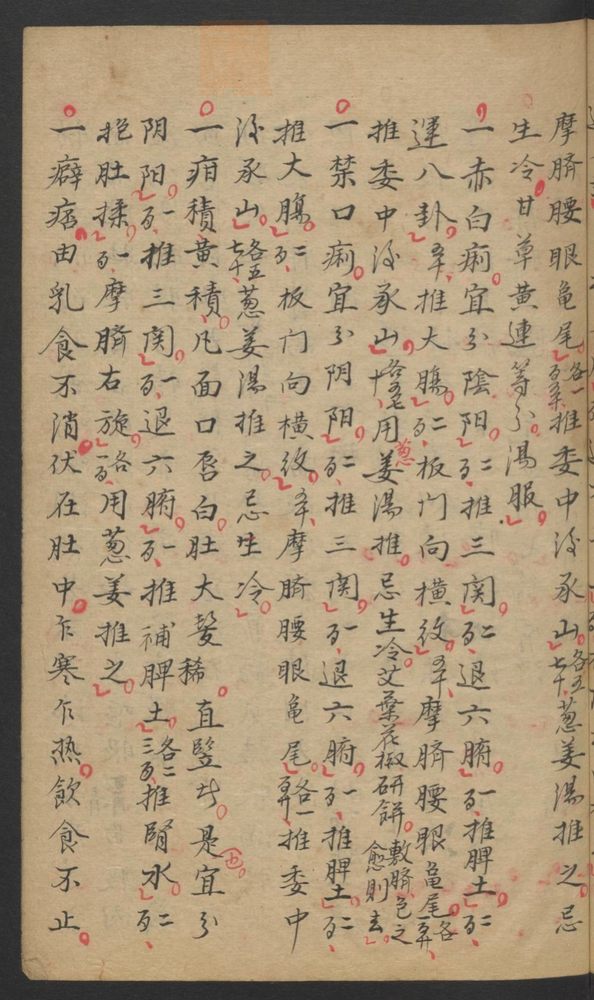 摩臍腰眼龟尾各一百五十推委中後承山各五七十葱姜湯推之忌
生冷甘草黄連等分湯服
一赤白痢宜分陰阳二百推三関二百退六腑一百推脾土二百
運八卦五十推大腸二百板门向横纹五十摩臍腰眼龟尾各
推委中後承山各五七十用葱姜湯推忌生冷艾葉花椒研餅敷臍包之愈則去
一禁口痢宜分阴阳二百推三関一百退六腑一百推脾土二百
推大腸二百板门向横纹五十摩臍腰眼龟尾各一推委中
後承山各五七十葱姜湯推之忌生冷
一疳積黄積凡面口唇白肚大髮稀直竪步是宜分
阴阳一百推三関一百退六腑一百推補脾土各二三百推腎水二百
抱肚揉一百摩臍右旋各一百用葱姜推之
一癖痞由乳食不消伏在肚中乍寒乍热飲食不止